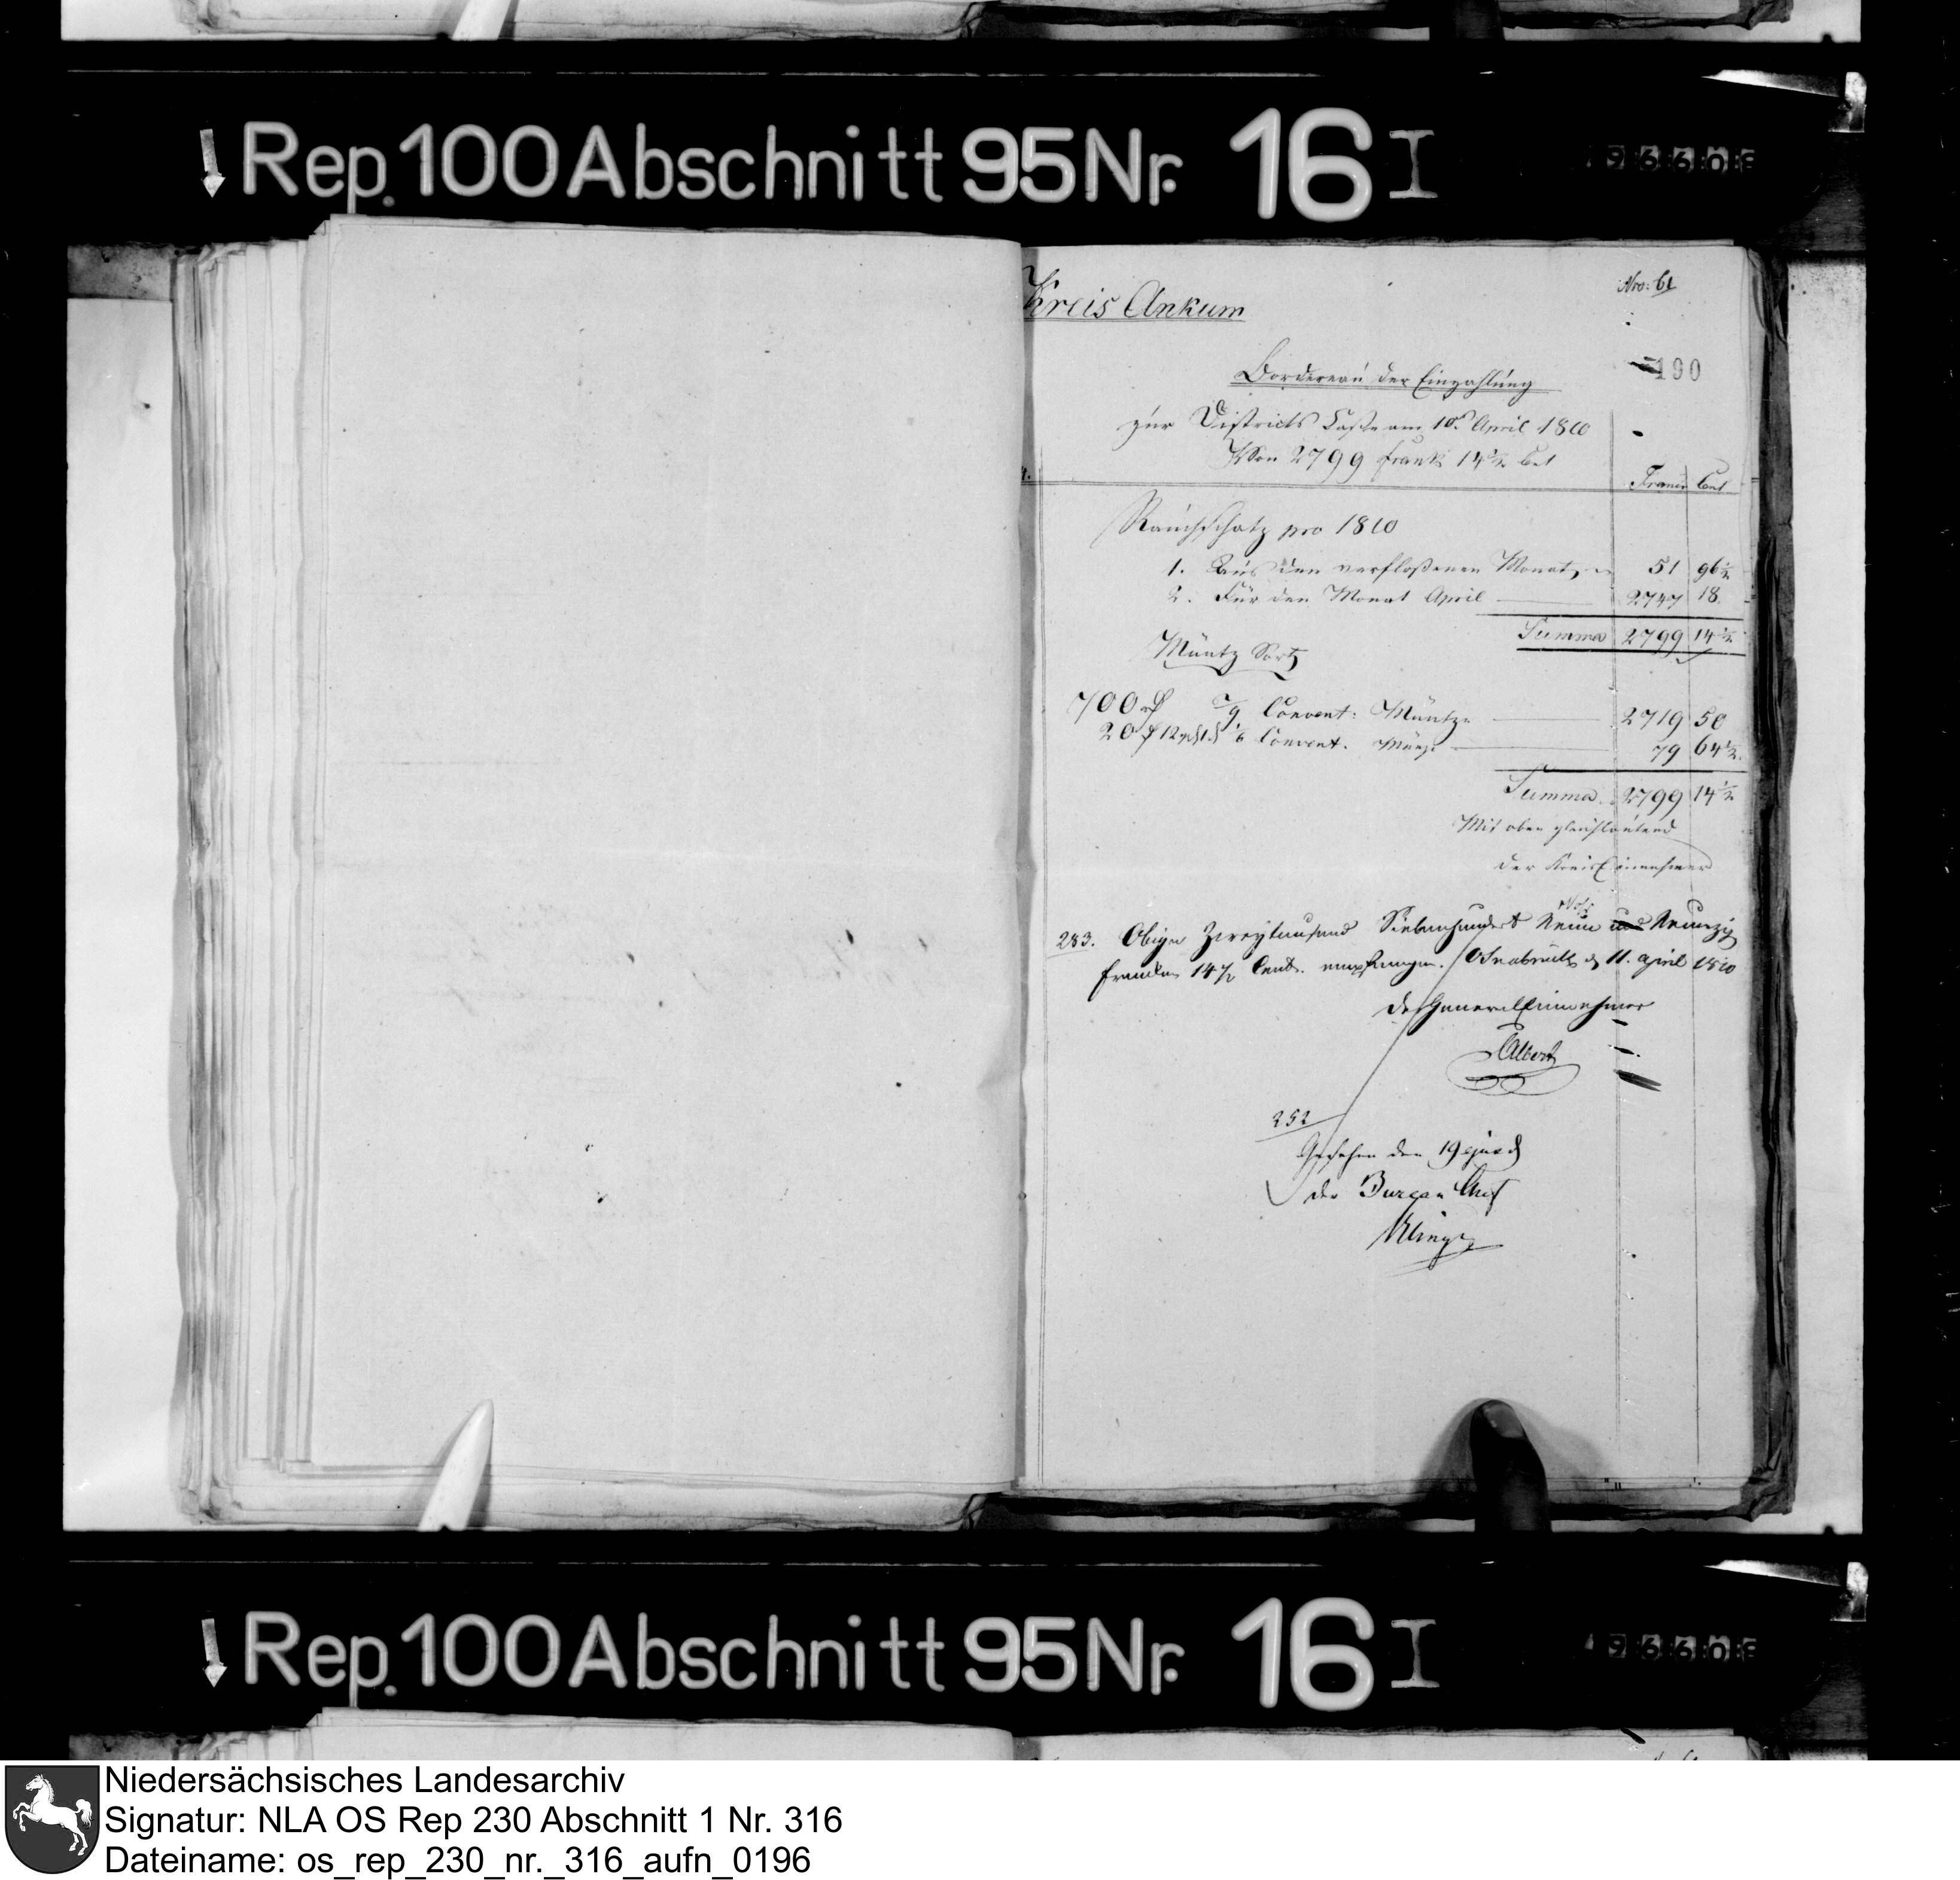 Rep. 100 Abschnitt 95 Nr. 16 I
Kreis Ankum
Nro: 61
190
Bordereau der Einzahlung
zur Districts Casse am 10t April 1810
Von 2799 Frank 14½ Cent
Francs Cent
Rauchschatz pro 1810
1. Aus den verfloßenen Monat 51 96½
2. Für den Monat April 2747 18
Summa 2799 14½
Müntz Sort
700 rth Convent: Müntze 2719 50
20 12 1/6 Convent. Münze 79 64½
Summa 2799 14½
Mit oben gleichlautend
der Kreis Einnehmer
283. Obige Zweytausend Siebenhundert Neun und Neunzig
Franken 14½ Cent. empfangen. Osnabrück d 11. april 1810
der General Einnehmer
Albert
252
Gesehen den 19 ejusd
der Bureau Chef
Rep. 100 Abschnitt 95 Nr. 16 I
Niedersächsisches Landesarchiv
Signatur: NLA OS Rep 230 Abschnitt 1 Nr. 316
Dateiname: os_rep_230_nr._316_aufn_0196